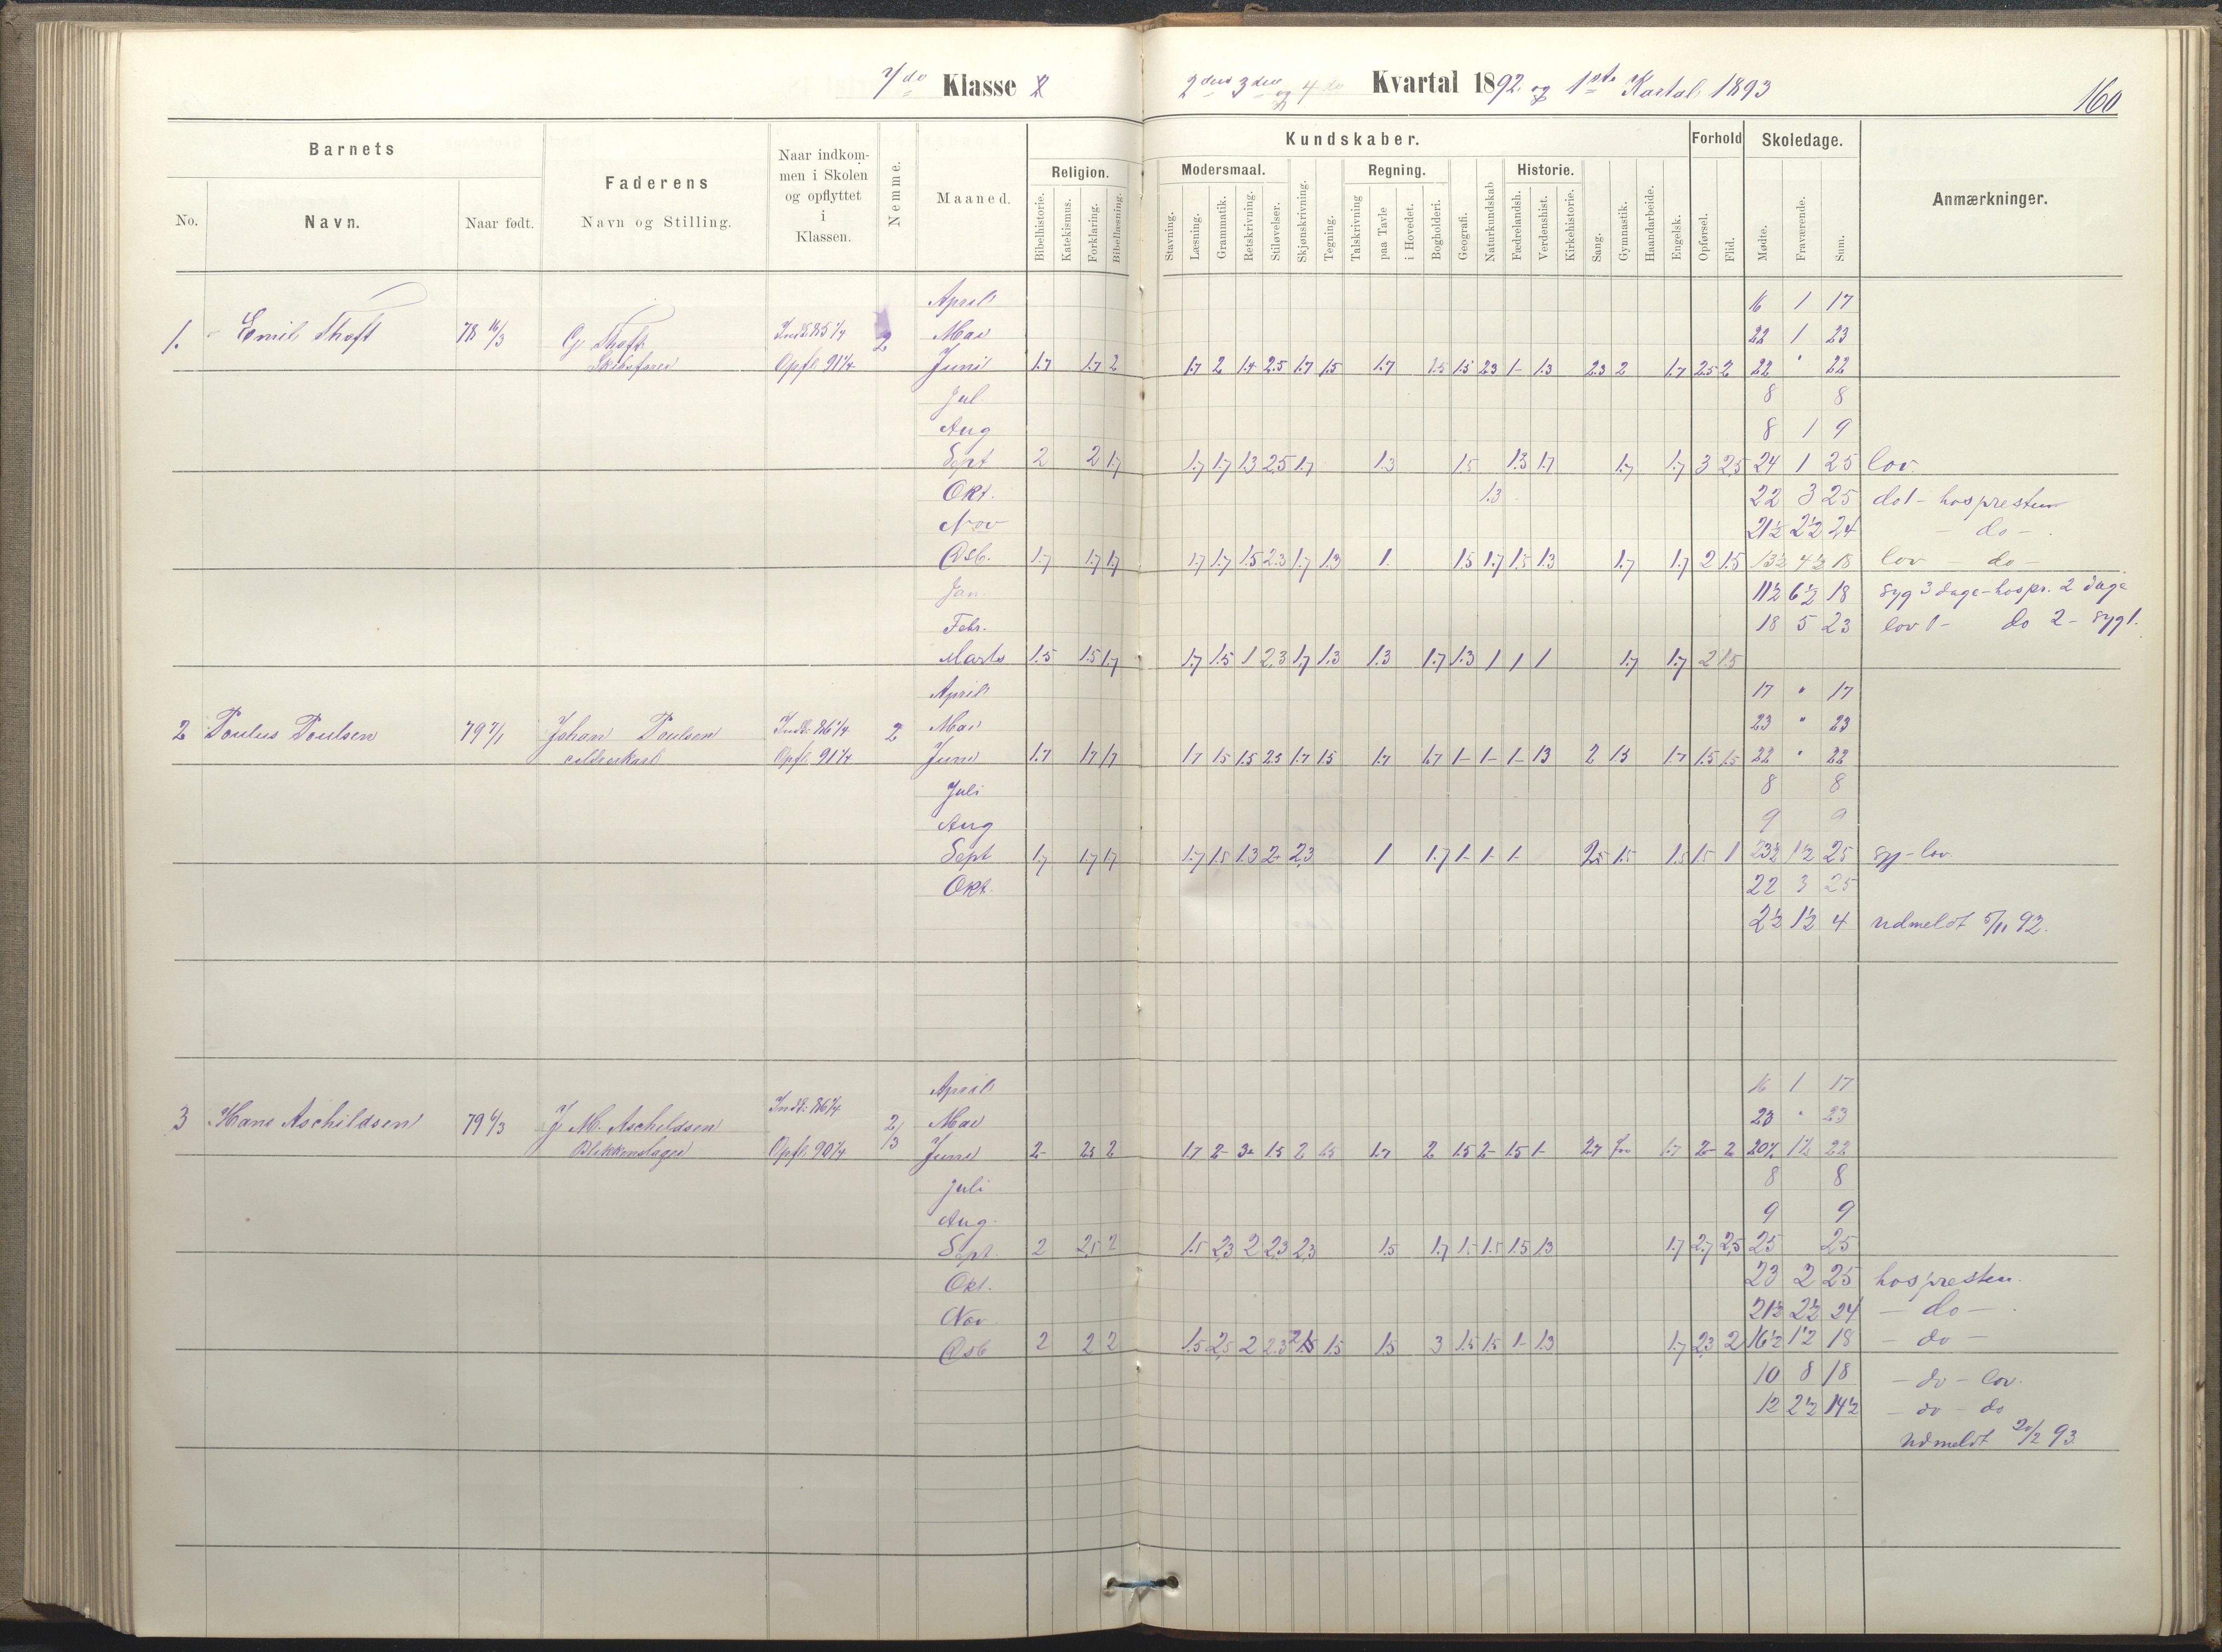 7de Klasse
2det 3die og 4de Kvartal 1892 og 1ste Kvartal 1893
160
Barnets
Faderens
Naar indkommen i Skolen og opflyttet i Klassen.
Nemme.
Maaned.
Kundskaber.
Forhold
Skoledage.
Anmærkninger.
No.
Navn.
Naar født.
Navn og Stilling.
Religion.
Modersmaal.
Regning.
Historie.
Bibelhistorie.
Katekismus.
Forklaring.
Bibellæsning.
Stavning.
Læsning.
Grammatik.
Retskrivning.
Stiløvelser.
Skjønskrivning.
Tegning.
Talskrivning
paa Tavle
i Hovedet.
Bogholderi.
Geografi.
Naturkundskab
Fædrelandsh.
Verdenshist.
Kirkehistorie.
Sang.
Gymnastik.
Haandarbeide.
Engelsk.
Opførsel.
Flid.
Mødte.
Fraværende.
Sum.
April 16 1 17
1. Emil Thoft 78 16/3 G Thoft Indk 85 1/4 2 Mai 22 1 23
Opfl 91 1/4 Juni 1.7 1.7 2 1.7 2 1.4 2.5 1.7 1.5 1.7 1.5 1.5 2.3 1- 1.3 2.3 2 1.7 2.5 2 22 " 22
Jul 8 8
Aug 8 1 9
Sept 2 2 1.7 1.7 1.7 1.3 2.5 1.7 1.3 1.5 1.3 1.7 1.7 1.7 3 2.5 24 1 25 lov
Okt. 1.3 22 3 25 do 1 - hos presten
Nov 21½ 2½ 24 - do -
Dsb. 1.7 1.7 1.7 1.7 1.7 1.5 2.3 1.7 1.3 1. 1.5 1.7 1.5 1.3 1.7 1.7 2 1.5 13½ 4½ 18 lov - do -
Jan 11½ 6½ 18 syg 3 dage - hos pr. 2 dage
Febr. 18 5 23 lov 1 - do 2 - syg 1.
Marts 1.5 1.5 1.7 1.7 1.5 1 2.3 1.7 1.3 1.3 1.7 1.3 1 1 1 1.7 1.7 2 1.5
April 17 " 17
2 Poulus Poulsen 79 7/1 Johan Poulsen Indk 86 1/4 2 Mai 23 " 23
Opfl. 91 1/4 Juni 1.7 1.7 1.7 1.7 1.5 1.5 2.5 1.7 1.5 1.7 1.7 1- 1- 1- 1.3 2 1.5 1.7 1.5 1.5 22 " 22
Juli 8 8
Aug 9 9
Sept 1.7 1.7 1.7 1.7 1.5 1.3 2- 2.3 1 1.7 1- 1- 1- 2.5 1.5 1.5 1.5 1 23½ 1½ 25 syg - lov.
Okt. 22 3 25
2½ 1½ 4 udmeldt 5/11 92.
April 16 1 17
3 Hans Aschildsen 79 6/3 J. M. Aschildsen Indk: 86 1/4 2/3 Mai 23 " 23
Blikkenslager Opfl 90 1/4 Juni 2- 2.5 2 1.7 2- 3- 1.5 2 1.5 1.7 2 1.5 2- 1.5 1- 2.7 1.7 2- 2 20½ 1½ 22
Juli 8 8
Aug. 9 9
Sept. 2 2.5 2 1.5 2.3 2 2.3 2.3 1.5 1.7 1.5 1.5 1.5 1.3 1.7 2.7 2.5 25 25
Okt. 23 2 25 hos presten.
Nov 21½ 2½ 24 - do -
Dsb 2 2 2 1.5 2.5 2 2.3 1.5 1.5 3 1.5 1.5 1- 1.3 1.7 2.3 2 16½ 1½ 18 - do -
10 8 18 - do - lov.
12 2½ 14½ - do - do
Udmeldt 20/2 93